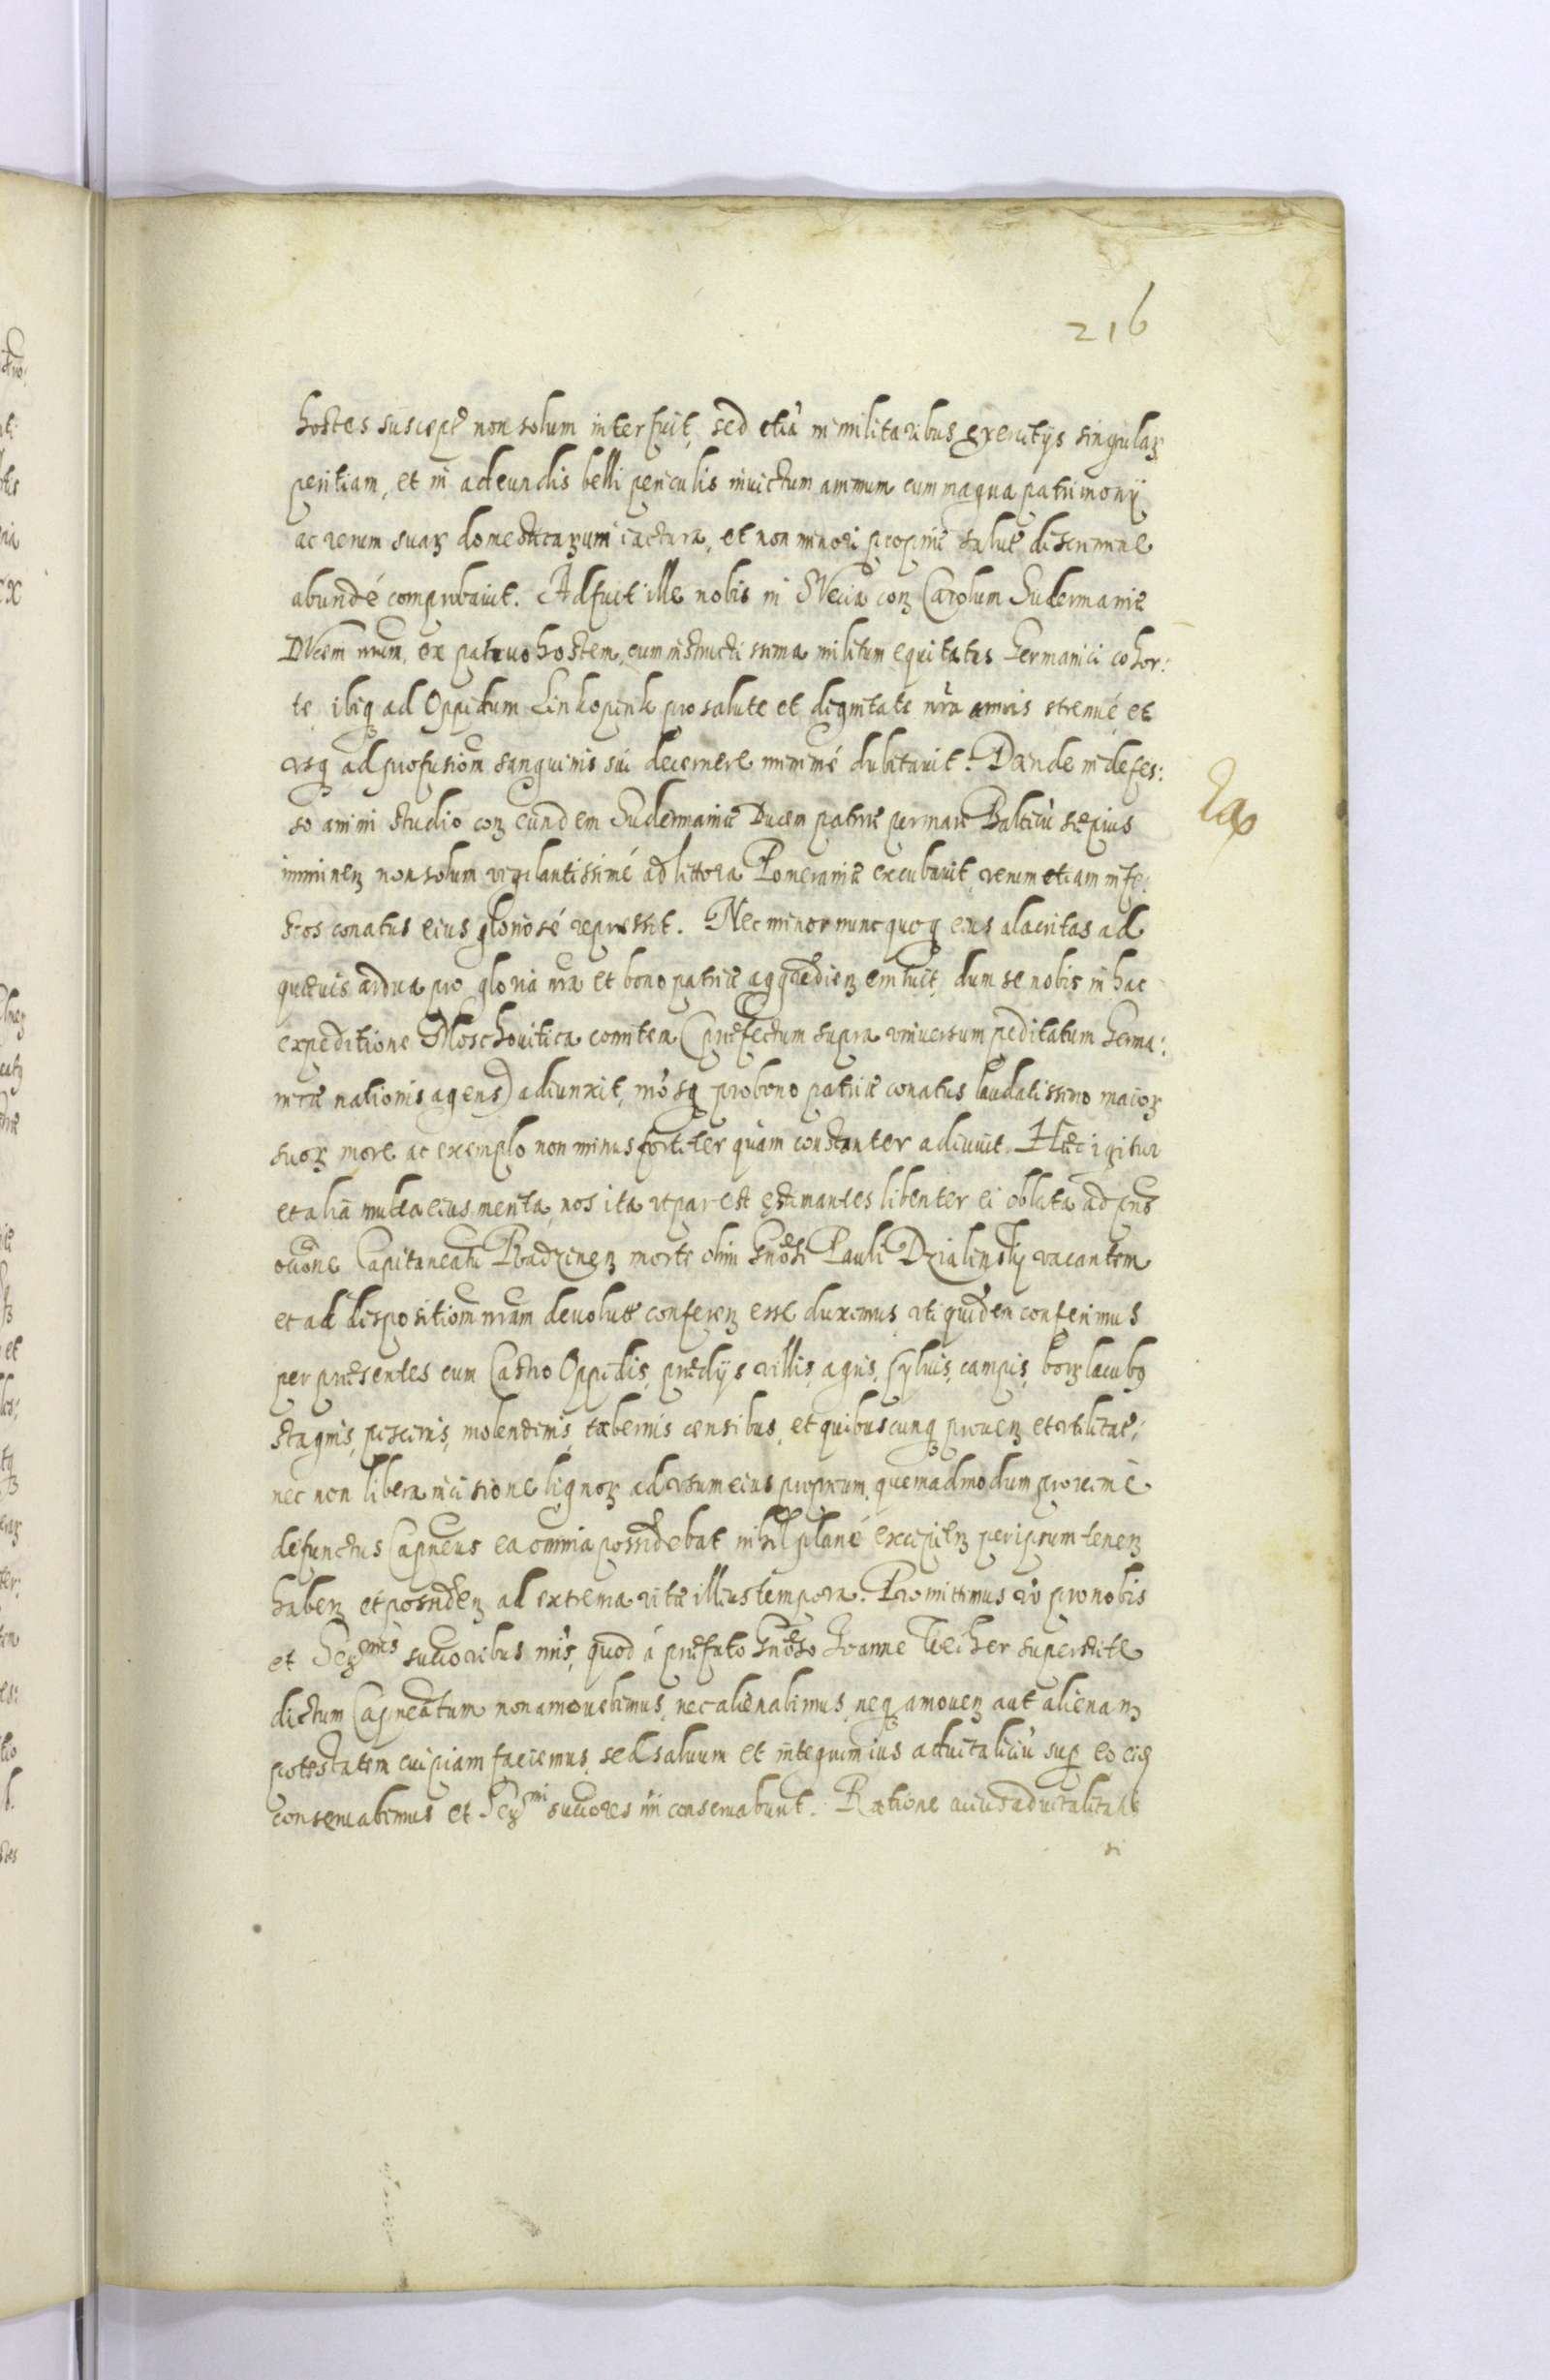 216
hostes suscept non solum interfuit, sed etiã in militaribus exercitijs singulaꝝ
peritiam, et in adeundis belli periculis inuictum animum cum magna patrimonij
ac rerum suaꝝ domesticarum iactura, et non minori propriæ salutẽ discrimine
abundé comprobauit. Adfuit ille nobis in Suecia conꝫ Carolum Sudermaniæ
Ducem nrm̃, ex patruo hostem, cum instructissima militum equitatus Germanici cohor:
te ibiqꝫ ad Oppidum Linkopink pro salute et dignitate nr̃a armis strenué et
vsqꝫ ad profusionẽ sanguinis sui decernere minimé dubitauit. Deinde indefes:
so animi studio conꝫ eundem Sudermaniæ Ducem patriæ per mare Balticũ sæpius
imminenꝫ non solum vigilantissimé ad littora Pomeraniæ excubauit, verum etiam infe:
stos conatus eius glorioсé repressit. Nec minor nunc quoqꝫ eius alacritas ad
quæuis ardua pro gloria nr̃a et bono patriæ aggredienꝫ emicuit, dum se nobis in hac
expeditione Moschouitica comitem (præfectum supra vniuersum peditatum Germa:
nicæ nationis agens) adiunxit, nr̃osqꝫ pro bono patriæ conatus laudatissimo maioꝝ
suoꝝ more ac exemplo non minus fortiter quàm constanter adiuuit. Hæc igitur
et alia multa eius merita, nos ita vt par est æstimantes libenter ei oblata ad præns
occõne Capitaneatũ Radzinenꝫ morte olim Gnõsi Pauli Dzialinskij vacantem
et ad dispositionem nr̃am deuolutũ conferenꝫ esse duximus, vti quidem conferimus
per præsentes cum Castro Oppidis, prædijs villis, agris, syluis, campis, borꝝ lacubꝫ
stagnis, piscinis, molendinis, tabernis censibus, et quibuscunqꝫ prouenꝫ et vtilitatẽ:
nec non libera incisione lignoꝝ ad vsum eius proprium, quemadmodum proximè
defunctus Capneus ea omnia possidebat nihil planè excipienꝫ per ipsum tenenꝫ
habenꝫ et possidenꝫ ad extrema vitæ illius tempora. Promittimus v̓o pro nobis
et Serᵐⁱˢ succoribus nr̃is, quod á præfato Gnõso Joanne Weiher superstite
dictum Capneatum non amouebimus, nec alienabimus, neqꝫ amouenꝫ aut alienanꝫ
potestatem cuipiam faciemus, sed saluum et integrum ius aduitaliciũ sup̱ eo eiꝫ
conseruabimus et Serᵐⁱ succores nr̃i conseruabunt. Ratione cuius aduitalitatis
si